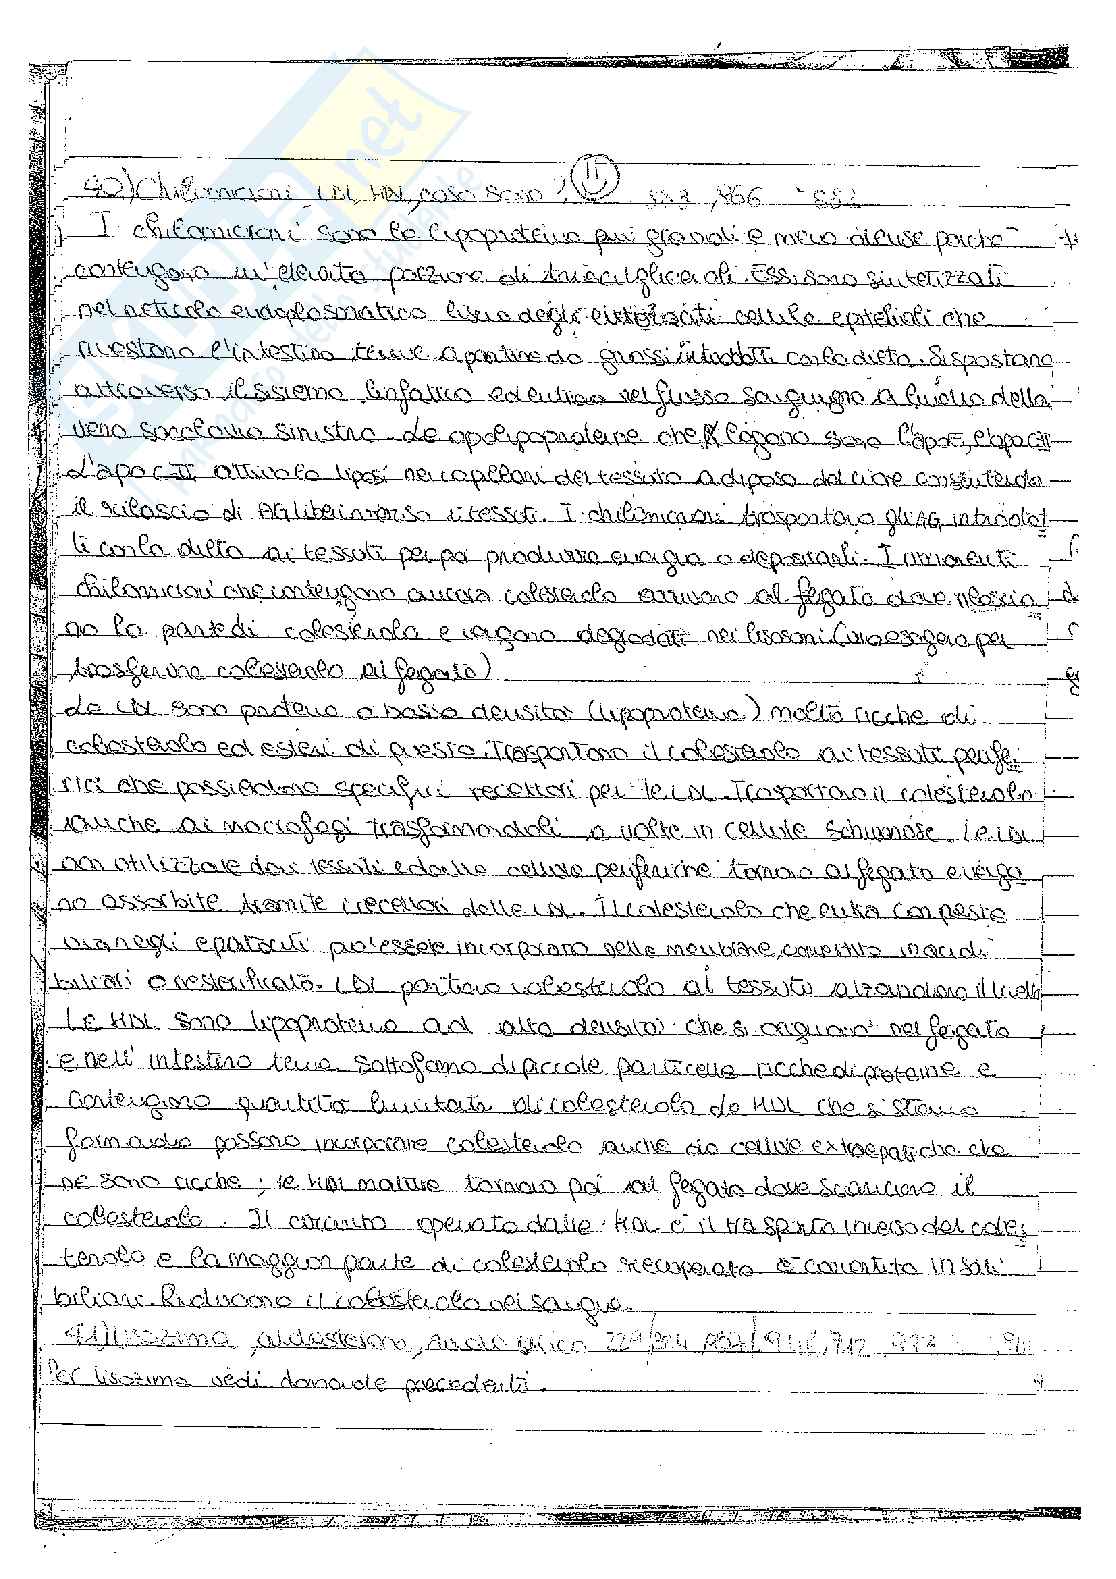 40) Chilomicroni, LDL, HDL, cosa sono? 15 866
I chilomicroni sono le lipoproteine più grandi e meno dense perché
contengono un'elevata porzione di triacilgliceroli. Essi sono sintetizzati
nel reticolo endoplasmatico liscio degli enterociti cellule epiteliali che
rivestono l'intestino tenue a partire da grassi introdotti con la dieta. Si spostano
attraverso il sistema linfatico ed entrano nel flusso sanguigno a livello della
vena succlavia sinistra. Le apolipoproteine che legano sono l'apoE, l'apoCII
L'apo CII attiva la lipasi nei capillari del tessuto adiposo del cuore consentendo
il rilascio di AG liberi verso i tessuti. I chilomicroni trasportano gli AG introdot
ti con la dieta ai tessuti per poi produrre energia o depositarli. I rimanenti
chilomicroni che contengono ancora colesterolo arrivano al fegato dove rilascia
no la parte di colesterolo e vengono degradati nei lisosomi (uno esogeno per
trasferire colesterolo al fegato)
Le LDL sono proteine a bassa densità (lipoproteine) molto ricche di
colesterolo ed esteri di questo. Trasportano il colesterolo ai tessuti perife
rici che possiedono specifici recettori per le LDL. Trasportano il colesterolo
anche ai macrofagi trasformandoli a volte in cellule schiumose. Le LDL
non utilizzate dai tessuti e dalle cellule periferiche tornano al fegato e vengo
no assorbite tramite i recettori delle LDL. Il colesterolo che entra con questa
via negli epatociti può essere incorporato nelle membrane, convertito in acidi
biliari o riesterificato. LDL portano colesterolo al tessuto alzandone il livello
Le HDL sono lipoproteine ad alta densità che si originano nel fegato
e nell'intestino tenue sottoforma di piccole particelle ricche di proteine e
contengono quantità limitate di colesterolo le HDL che si stanno
formando possono incorporare colesterolo anche da cellule extraepatiche che
ne sono ricche; le HDL mature tornano poi al fegato dove scaricano il
colesterolo. Il circuito operato dalle HDL è il trasporto inverso del coles
terolo e la maggior parte di colesterolo recuperato è convertito in sali
biliari. Riducono il colesterolo nel sangue.
41) Lisozima, aldosterone, 712
Per lisozima vedi domande precedenti.